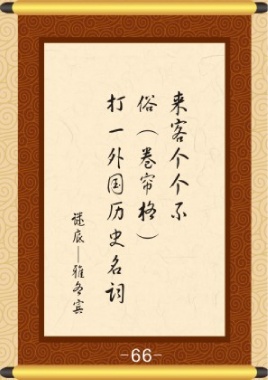 来客个个不
俗（卷帘格）
打一外国历史名词
谜底——雅各宾
-66-